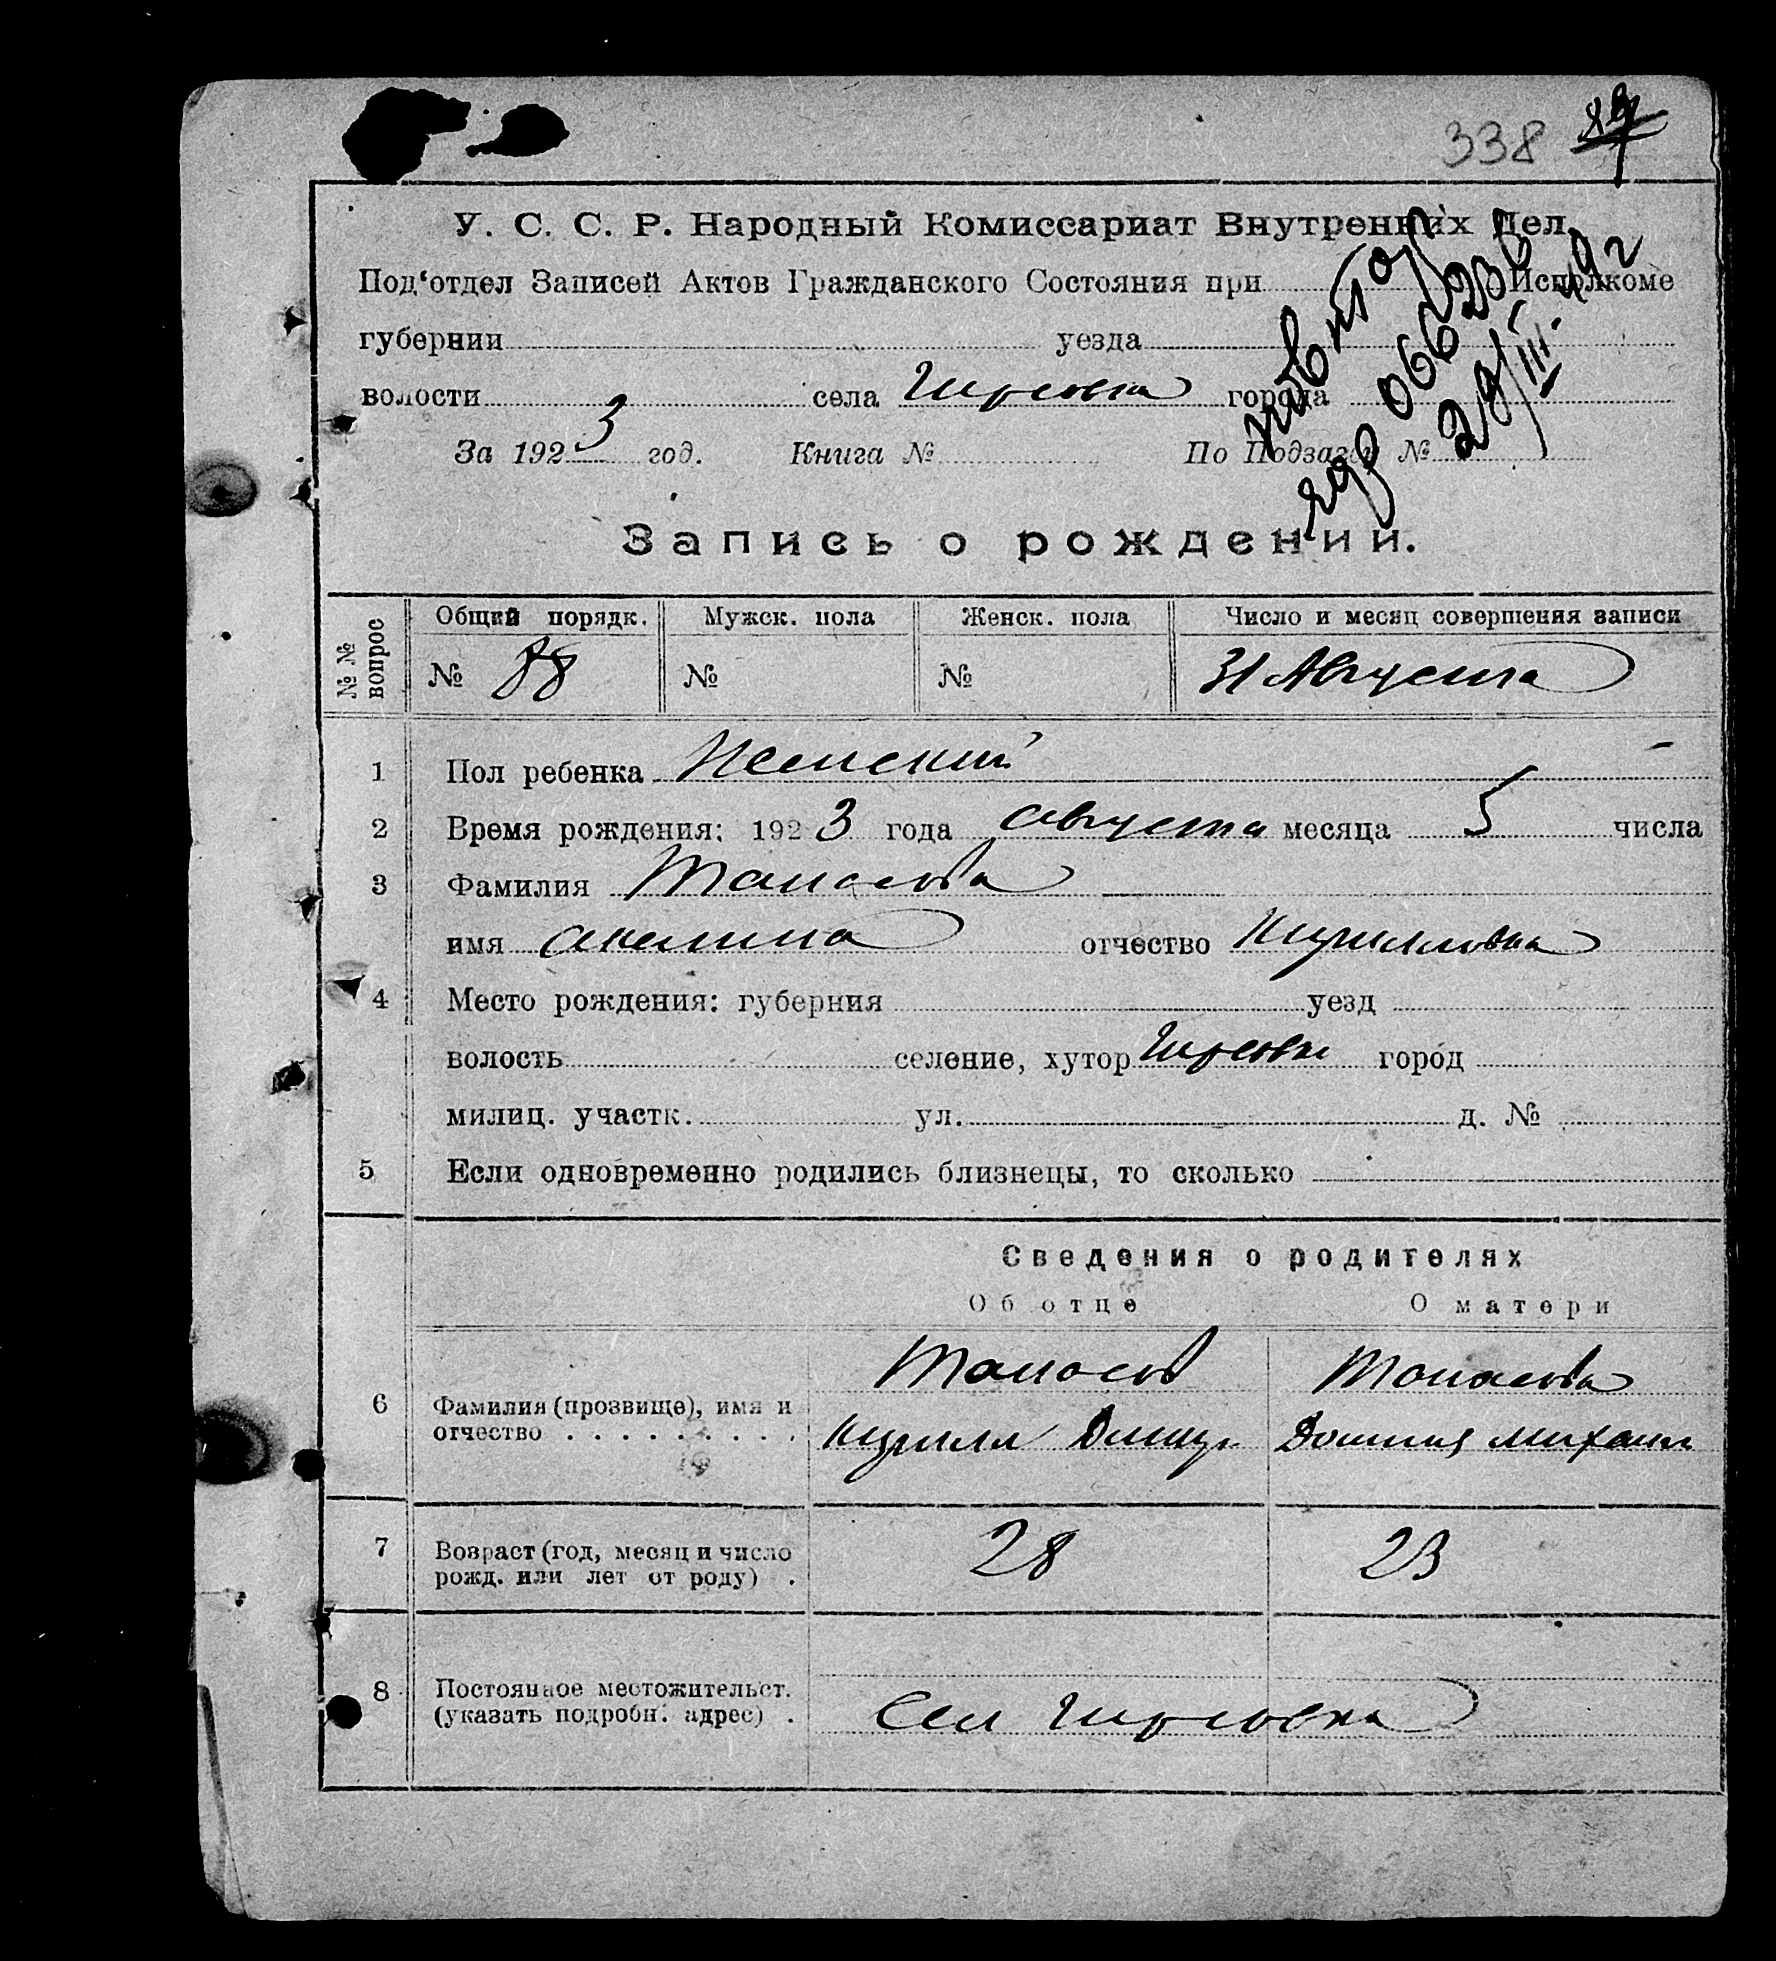 338
У. С. С. Р. Народный Комиссариат Внутренних Дел.
Под'отдел Записей Актов Гражданского Состояния при Исполкоме
губернии уезда
волости села города
За 1923 год. Книга № По Подзагс №
повтор
28/III. 49 г
Запись о рождении.
№ № вопрос Общий порядк. Мужск. пола Женск. пола Число и месяц совершения записи
№ 88 № № 31 Августа
1 Пол ребенка Женский
2 Время рождения: 1923 года августа месяца 5 числа
3 Фамилия Танасова
имя Акелина отчество Кирилловна
4 Место рождения: губерния уезд
волость селение, хутор город
милиц. участк. ул. д. №
5 Если одновременно родились близнецы, то сколько
Сведения о родителях
Об отце О матери
6 Фамилия (прозвище), имя и отчество Танасов Танасова
Кирилл Домния Михаил
7 Возраст (год, месяц и число рожд. или лет от роду) 28 23
8 Постоянное местожительст. (указать подробн. адрес) Сел